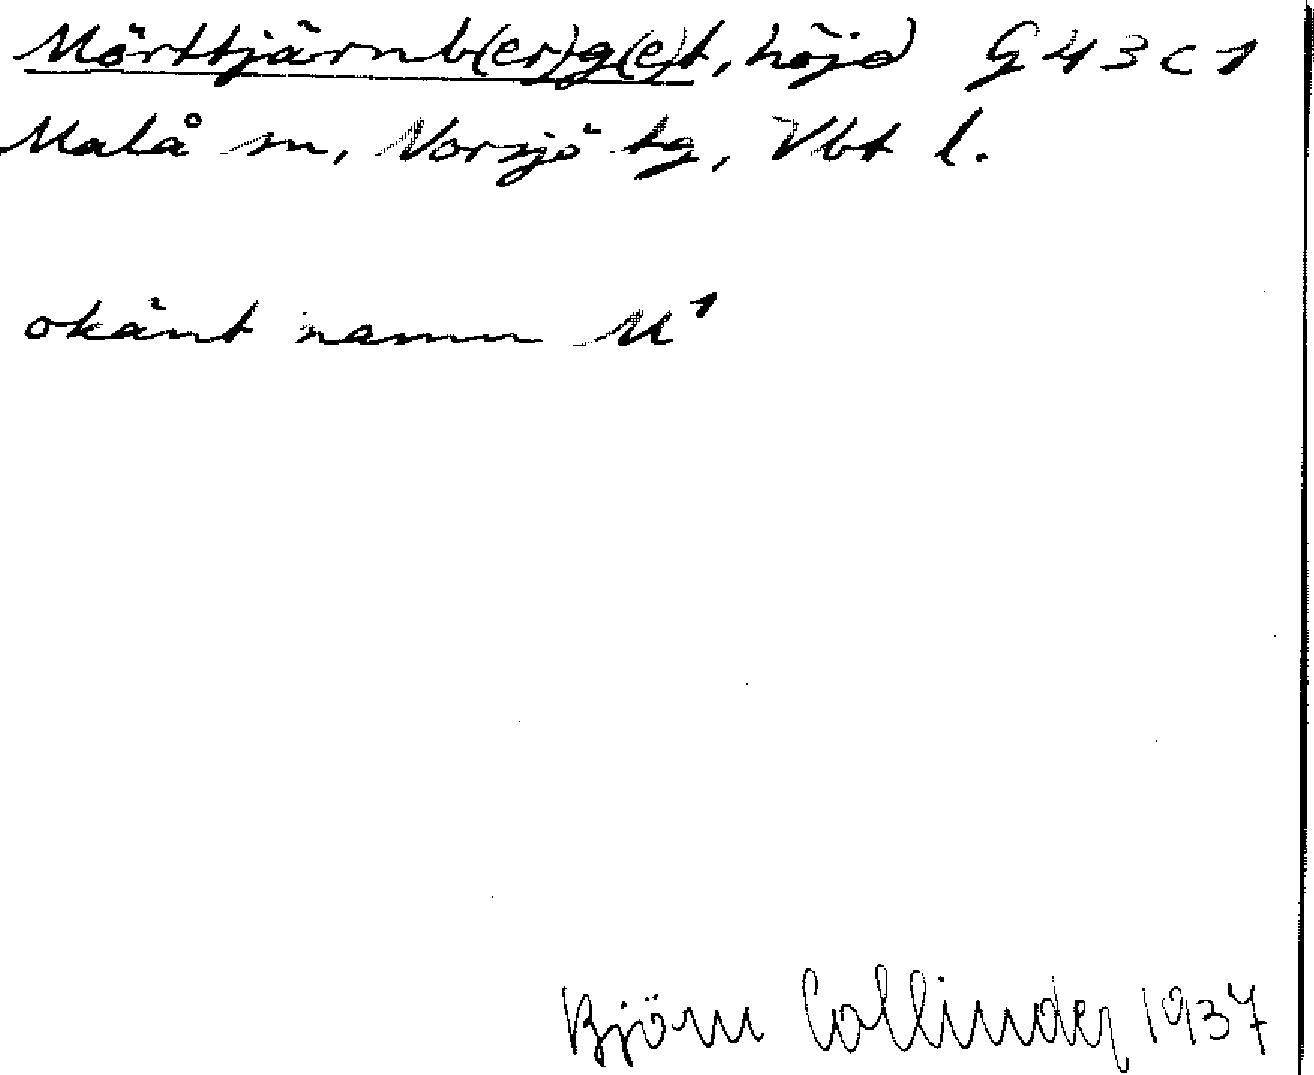 Mörttjärnb(er)g(e)t, höjd G43c1
Malå sn, Norsjö tg, Vbt l.
okänt namn M¹
Björn Collinder 1937